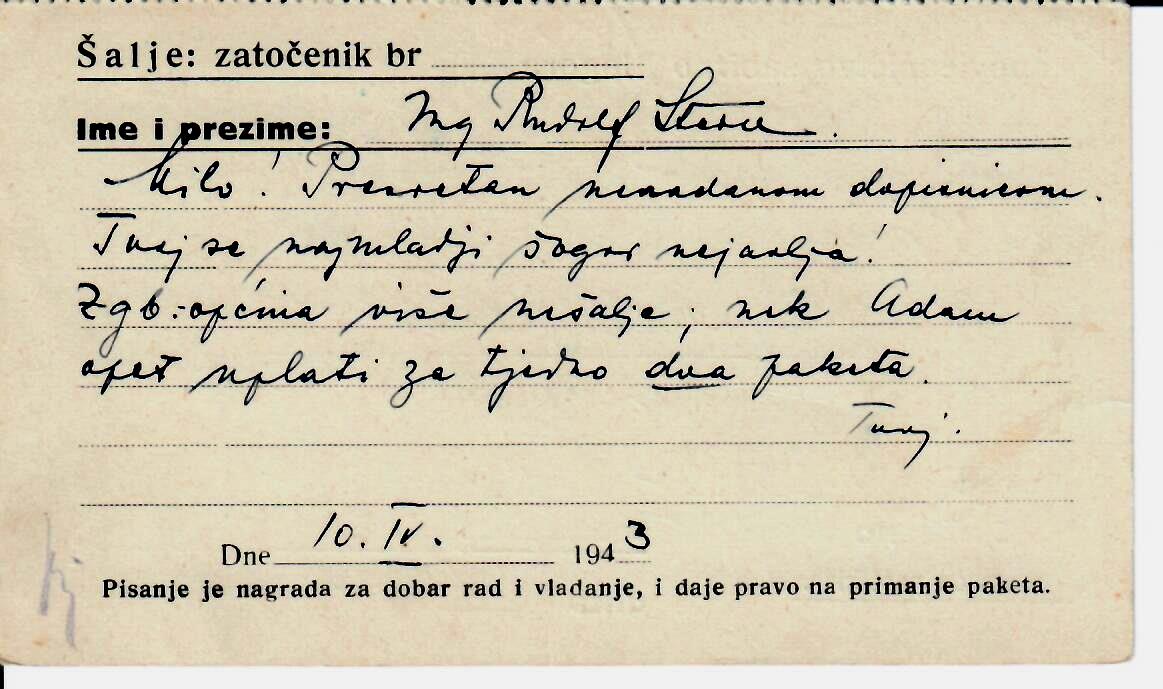 Šalje: zatočenik br
Ime i prezime: Mg Rudolf Stern.
Milo! Presretan nenadanom dopisnicom.
Tvoj se najmladji šogor nejavlja!
Zgb.-općina više nešalje; nek Adam
opet uplati za tjedno dva paketa.
Tvoj.
Dne 10. IV. 1943
Pisanje je nagrada za dobar rad i vladanje, i daje pravo na primanje paketa.